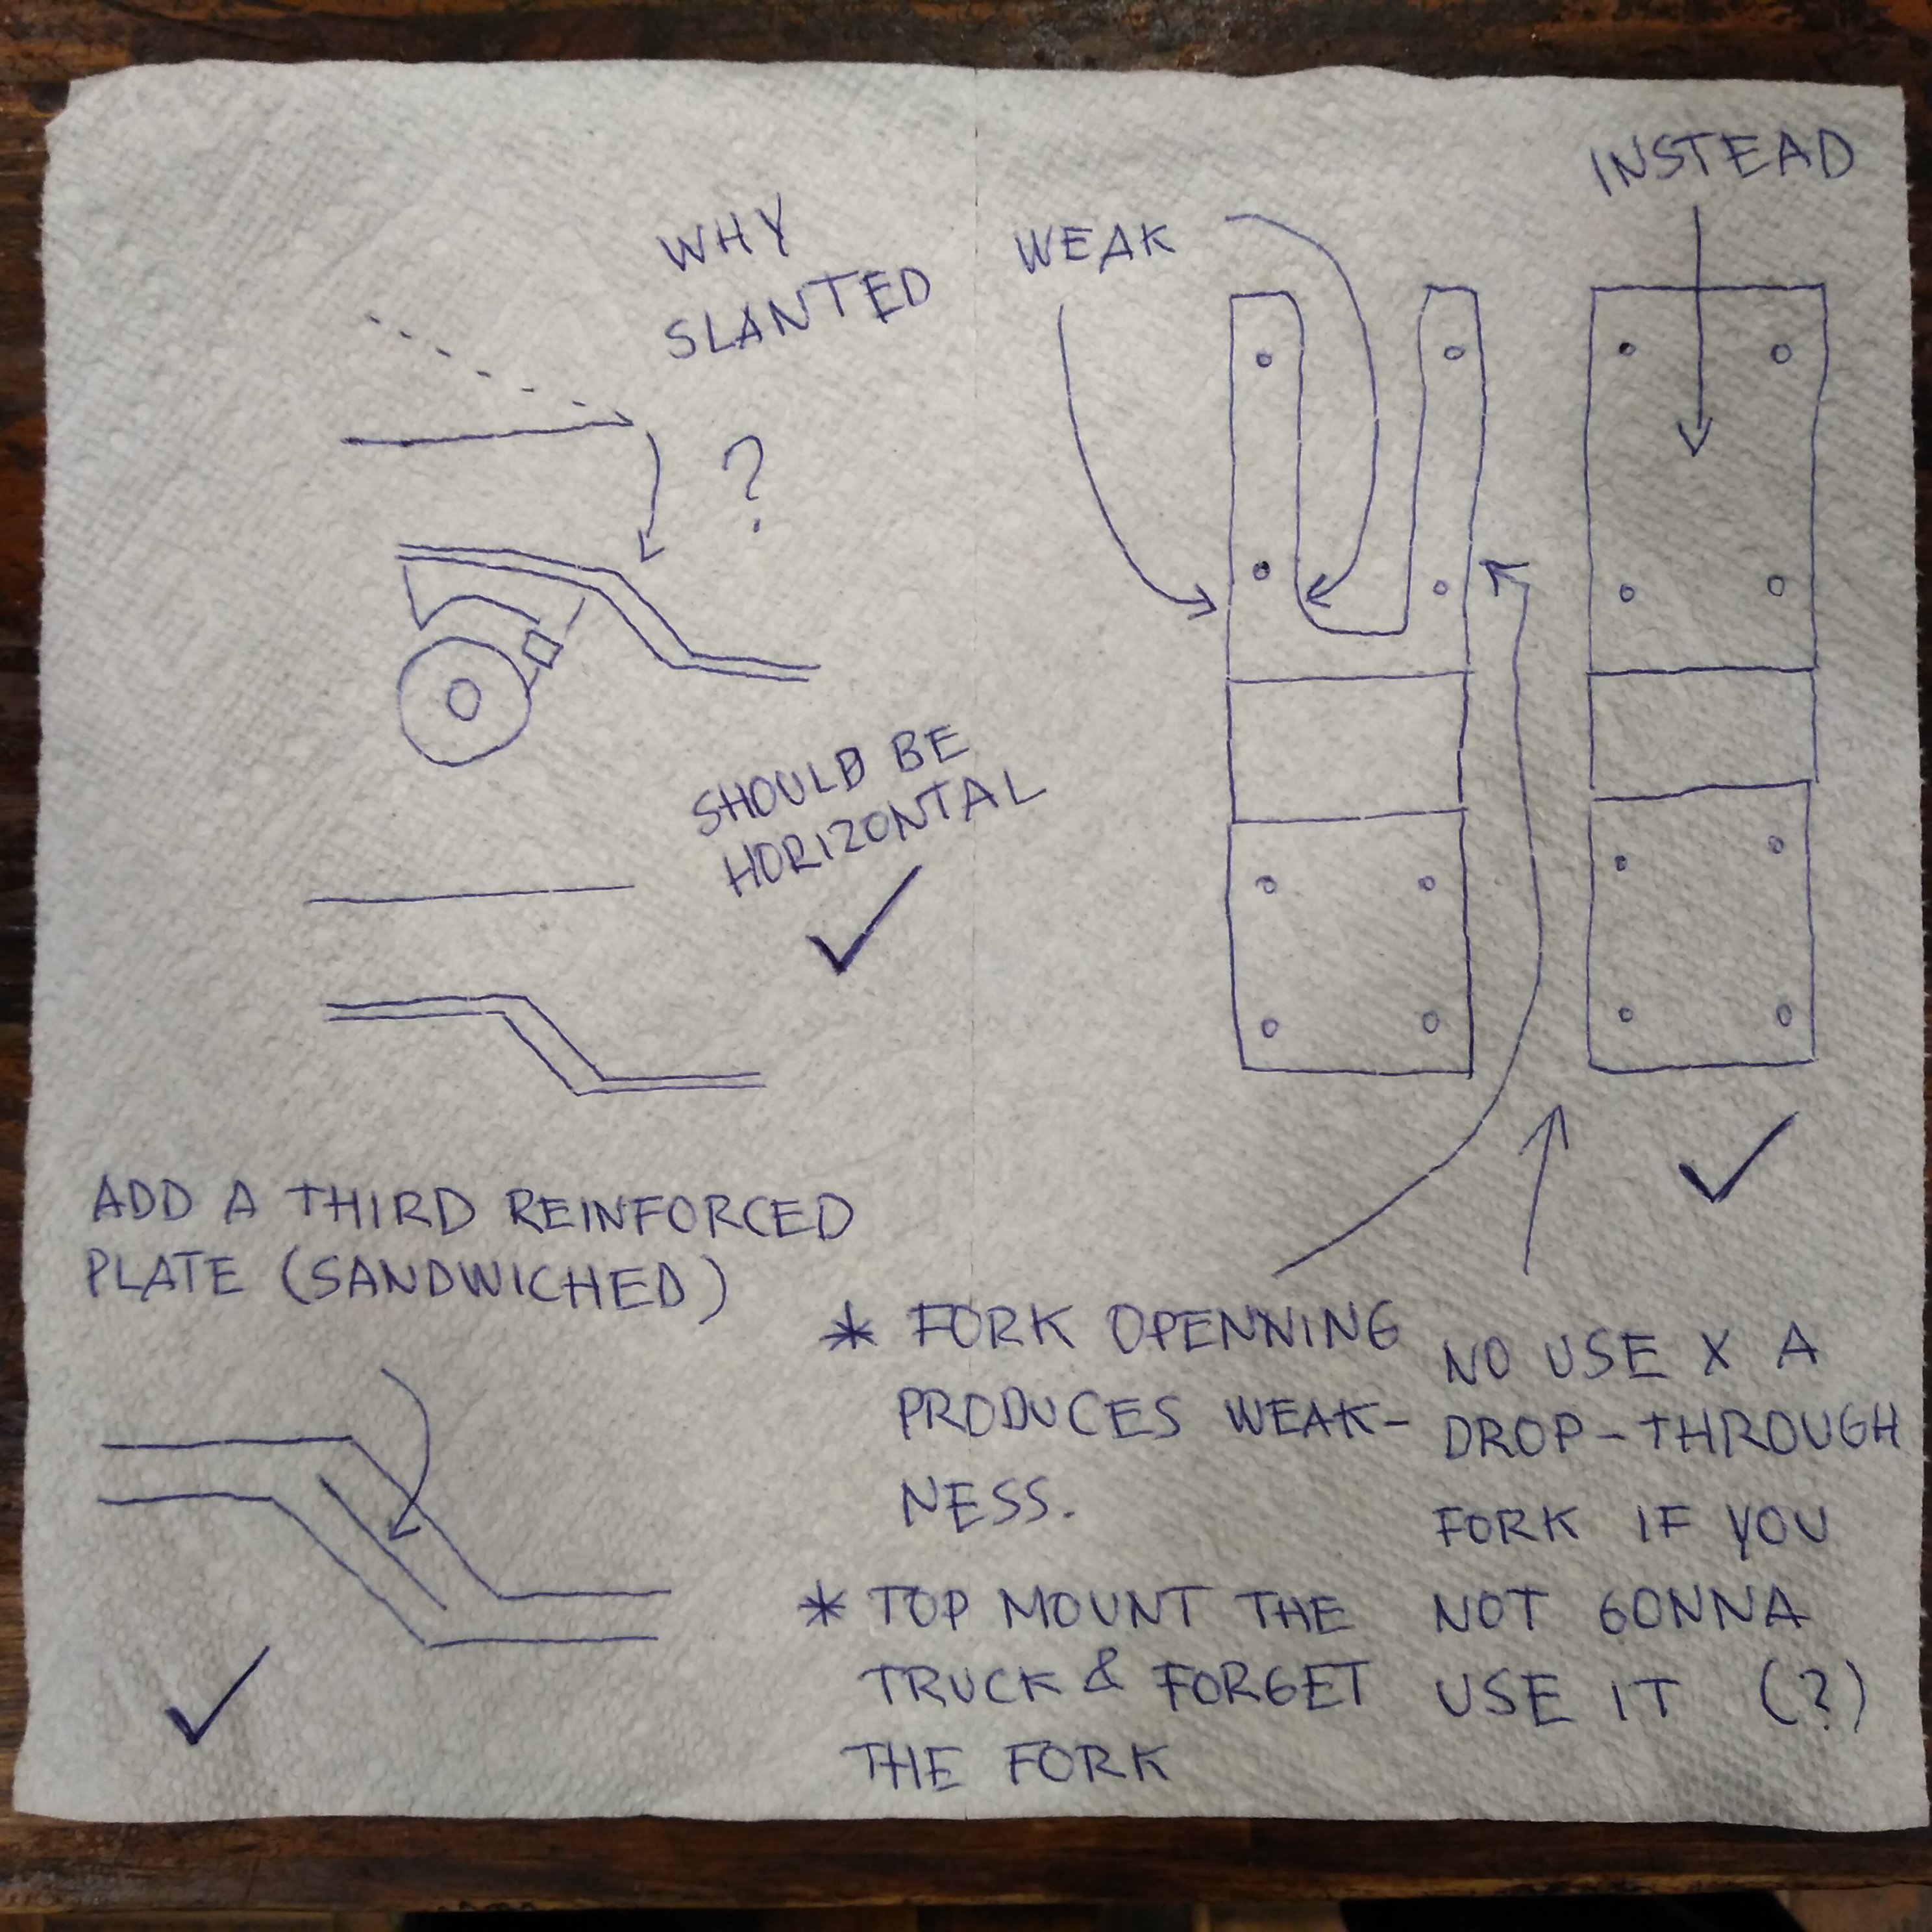 WHY
SLANTED
?
SHOULD BE
HORIZONTAL
ADD A THIRD REINFORCED
PLATE (SANDWICHED)
WEAK
INSTEAD
* FORK OPENNING
PRODUCES WEAK-
NESS.
* TOP MOUNT THE
TRUCK & FORGET
THE FORK
NO USE X A
DROP-THROUGH
FORK IF YOU
NOT GONNA
USE IT (?)